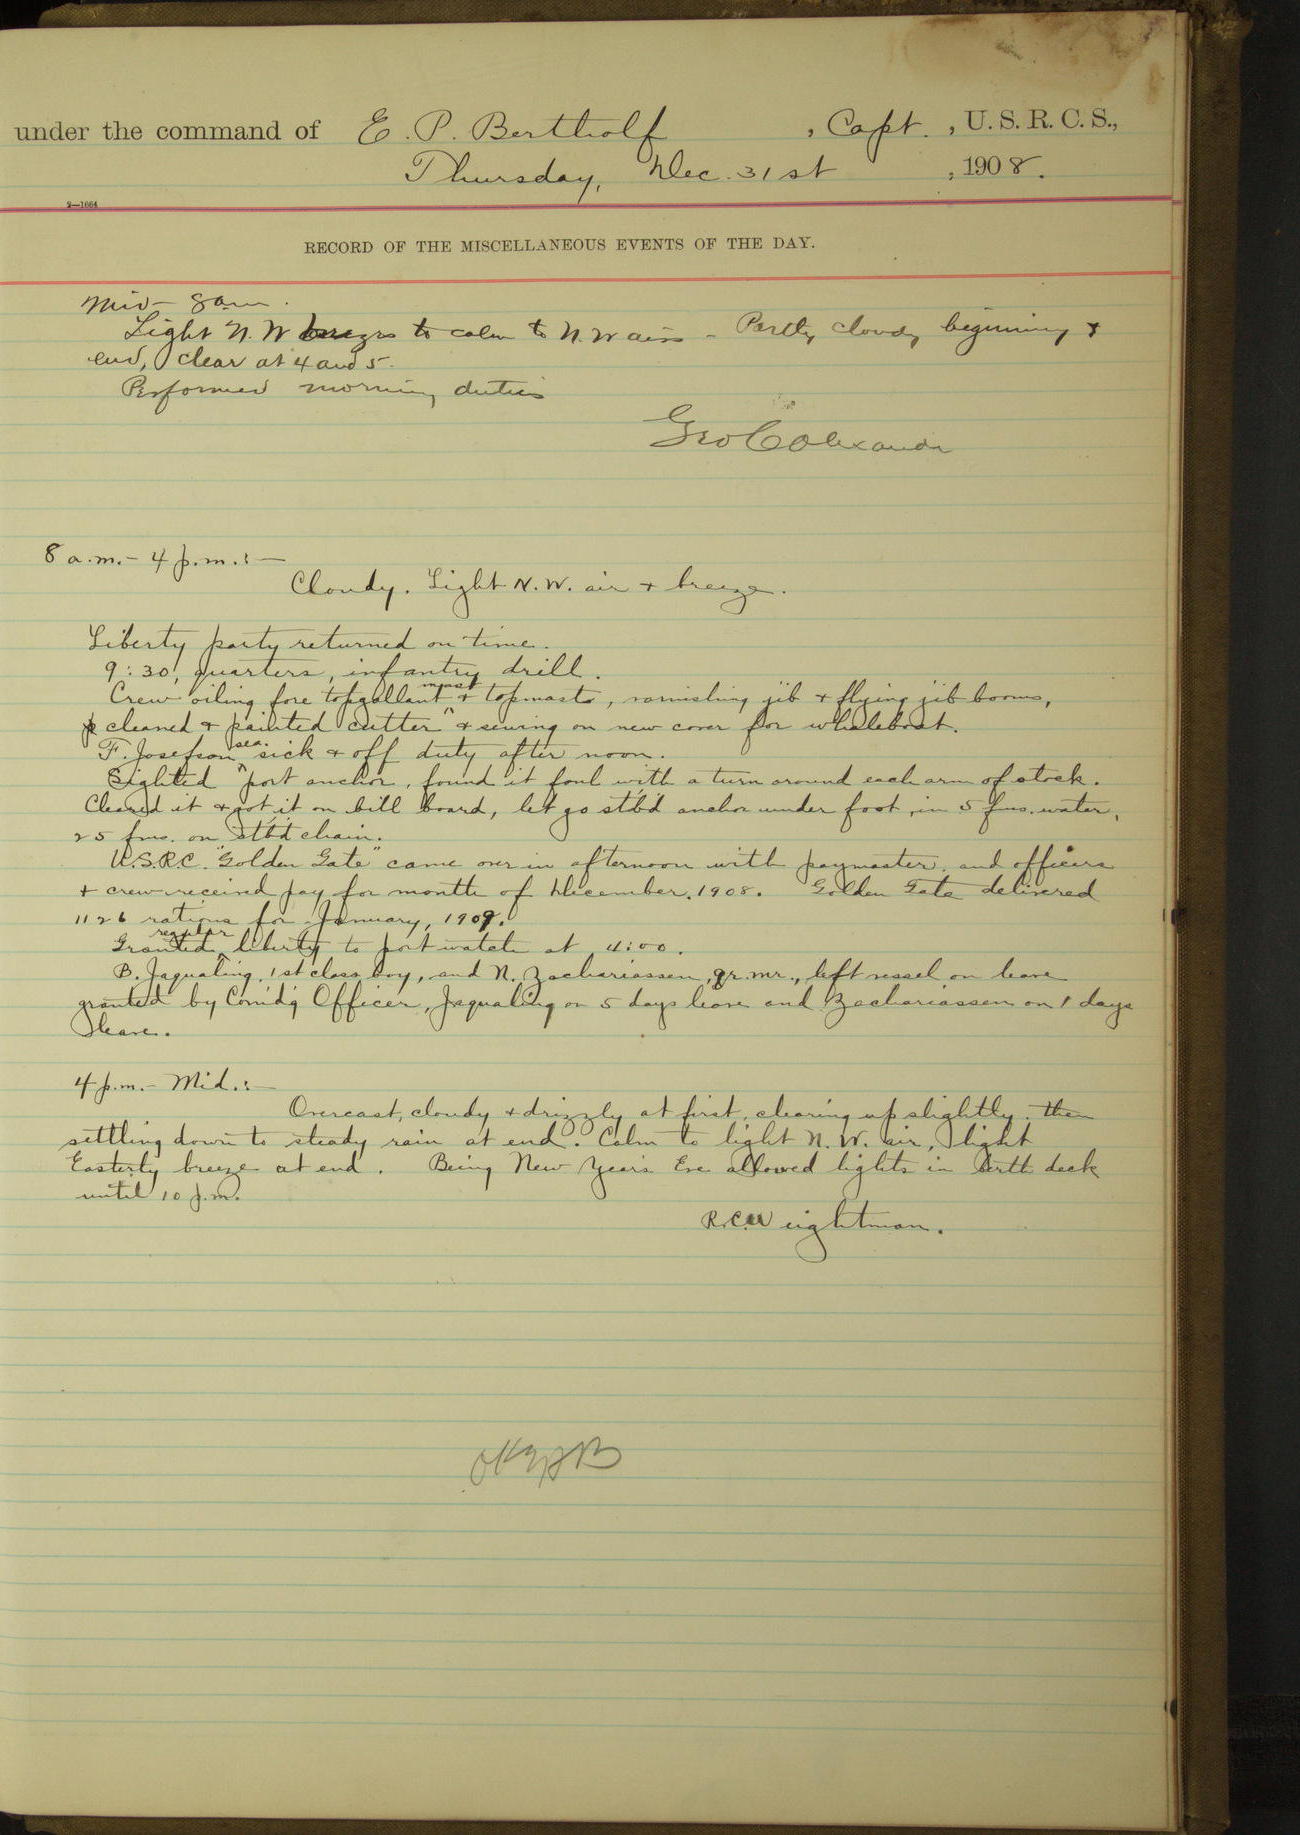 under the command of E. P. Bertholf , Capt. , U. S. R. C. S.,
Thursday, Dec. 31st , 1908.
2—1664
RECORD OF THE MISCELLANEOUS EVENTS OF THE DAY.
Mid - 8am.
Light N. W breezes to calm to N. W airs - Partly cloudy beginning &
end, clear at 4 and 5.
Performed morning duties
Geo C Alexander
8 a.m. - 4 p.m.:-
Cloudy. Light N. W. air & breeze.
Liberty party returned on time.
9:30, quarters, infantry drill.
Crew oiling fore topgallant mast & topmasts, varnishing jib & flying jib booms,
cleaned & painted cutter & sewing on new cover for whaleboat.
F. Josefson, sea. sick & off duty after noon.
Sighted port anchor, found it foul with a turn around each arm of stock.
Cleared it & got it on bill board, let go stb'd anchor under foot, in 5 fms. water,
25 fms. on stb'd chain.
U.S.R.C. "Golden Gate" came over in afternoon with paymaster, and officers
& crew received pay for month of December, 1908. Golden Gate delivered
1126 rations for January, 1909.
Granted regular liberty to port watch at 4:00.
B. Jaqualing, 1st class boy, and N. Zachariassen, qr. mr., left vessel on leave
granted by Com'd'g Officer, Jaqualing on 5 days leave and Zachariassen on 1 days
leave.
4 p.m. - Mid.:-
Overcast, cloudy & drizzly at first, clearing up slightly, then
settling down to steady rain at end. Calm to light N. W. air, light
Easterly breeze at end. Being New Years Eve allowed lights in berth deck
until 10 p.m.
R. C. Weightman.
OK EPB